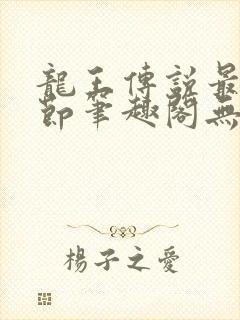 龍王傳說最
節筆趣閣無
楊子之愛